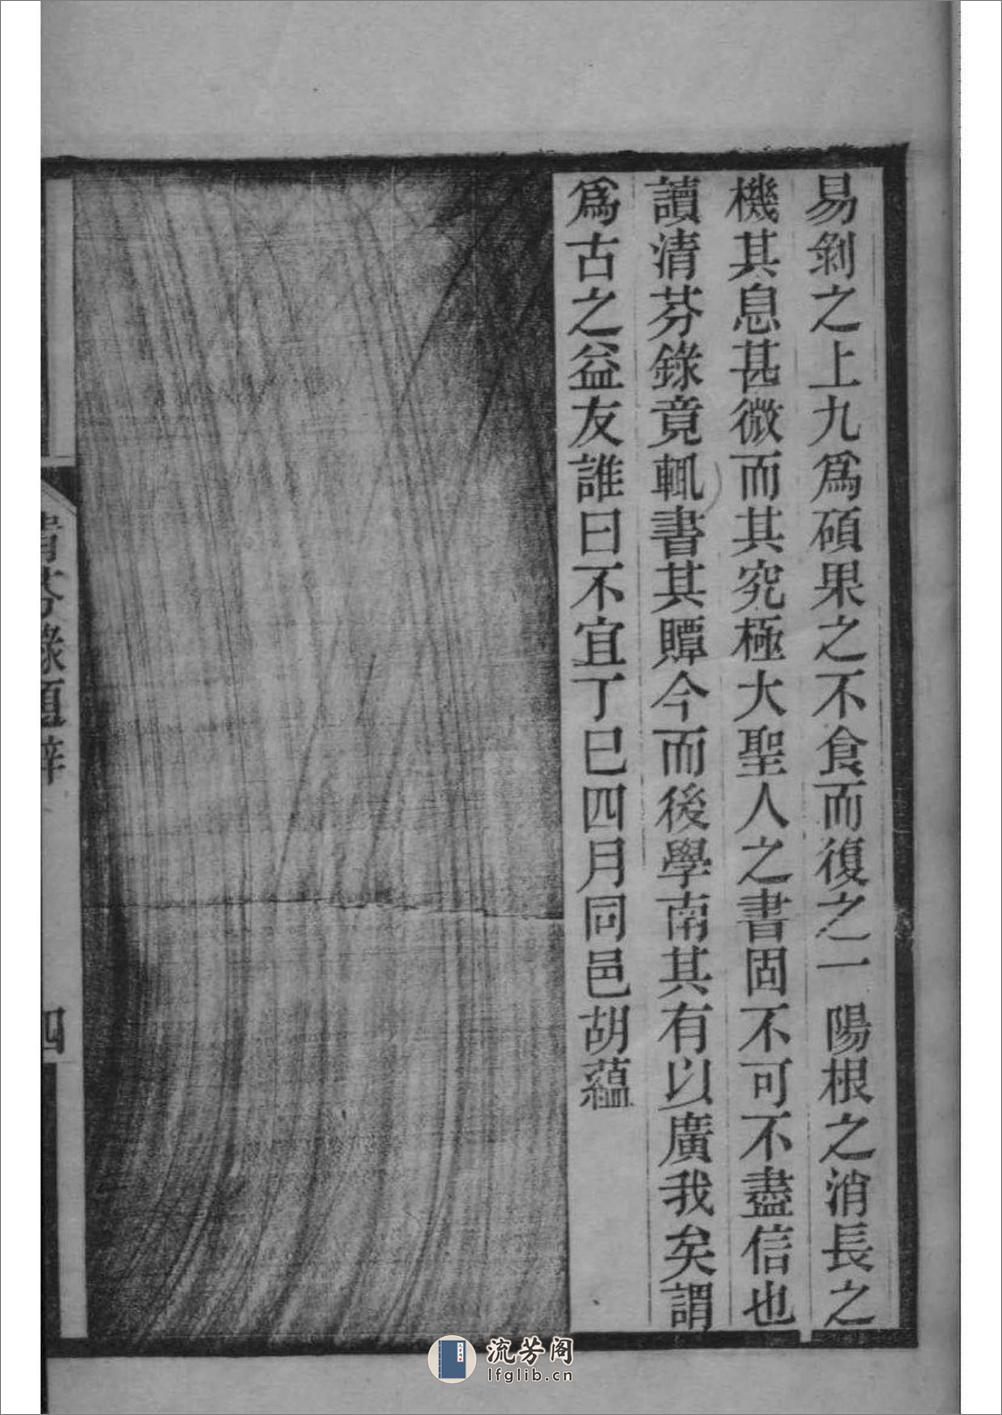 易剝之上九爲碩果之不食而復之一陽根之消長之
機其息甚微而其究極大聖人之書固不可不盡信也
讀清芬錄竟輒書其贉今而後學南其有以廣我矣謂
爲古之益友誰曰不宜丁巳四月同邑胡蘊
清芬錄題辭
四
流芳阁
lfglib.cn